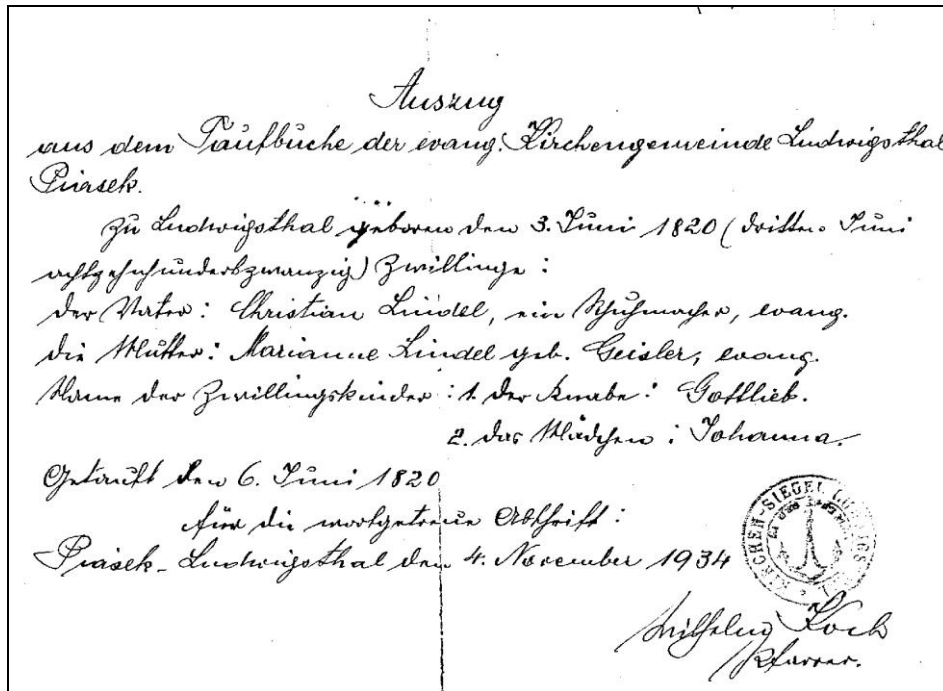 Auszug
aus dem Taufbuche der evang. Kirchengemeinde Ludwigsthal
Piasek.
Zu Ludwigsthal geboren den 3. Juni 1820 (dritten Juni
achtzehnhundertzwanzig) Zwillinge:
der Vater: Christian Lindel, ein Schuhmacher, evang.
die Mutter: Marianne Lindel geb. Geisler, evang.
Name der Zwillingskinder: 1. der Knabe: Gottlieb.
2. das Mädchen: Johanna.
Getauft den 6. Juni 1820
für die wortgetreue Abschrift:
Piasek-Ludwigsthal den 4. November 1934
KIRCHEN-SIEGEL
Wilhelm Koch
Pfarrer.